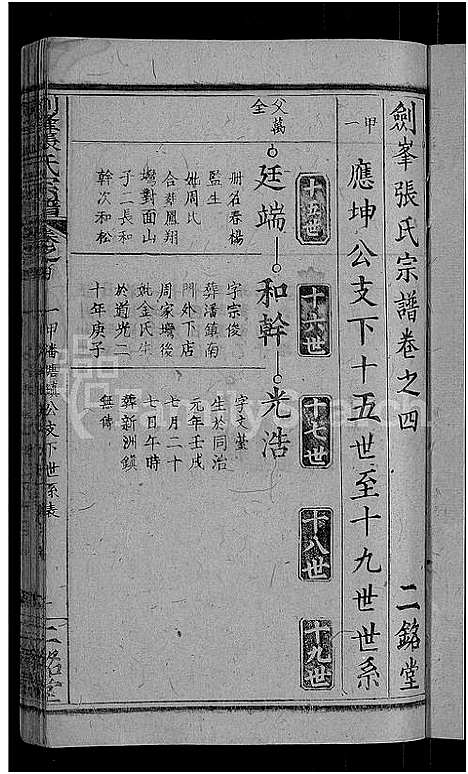 劍峯張氏宗譜卷之四 二銘堂
甲一 應坤公支下十五世至十九世世系
十五世
十六世
十七世
十八世
十九世
父萬全
廷端
和幹
光浩
册名春楊
監生
妣周比
合葬鳳翔
塆對面山
子二長和
幹次和松
字宗俊
葬潘鎮南
門外下店
周家墩後
妣金氏生
於道光二
十年庚子
字文堂
生於同治
元年壬戌
七月二十
七日午時
葬新洲鎮
無傳
一甲潘塘公支下世系表
FamilySearch